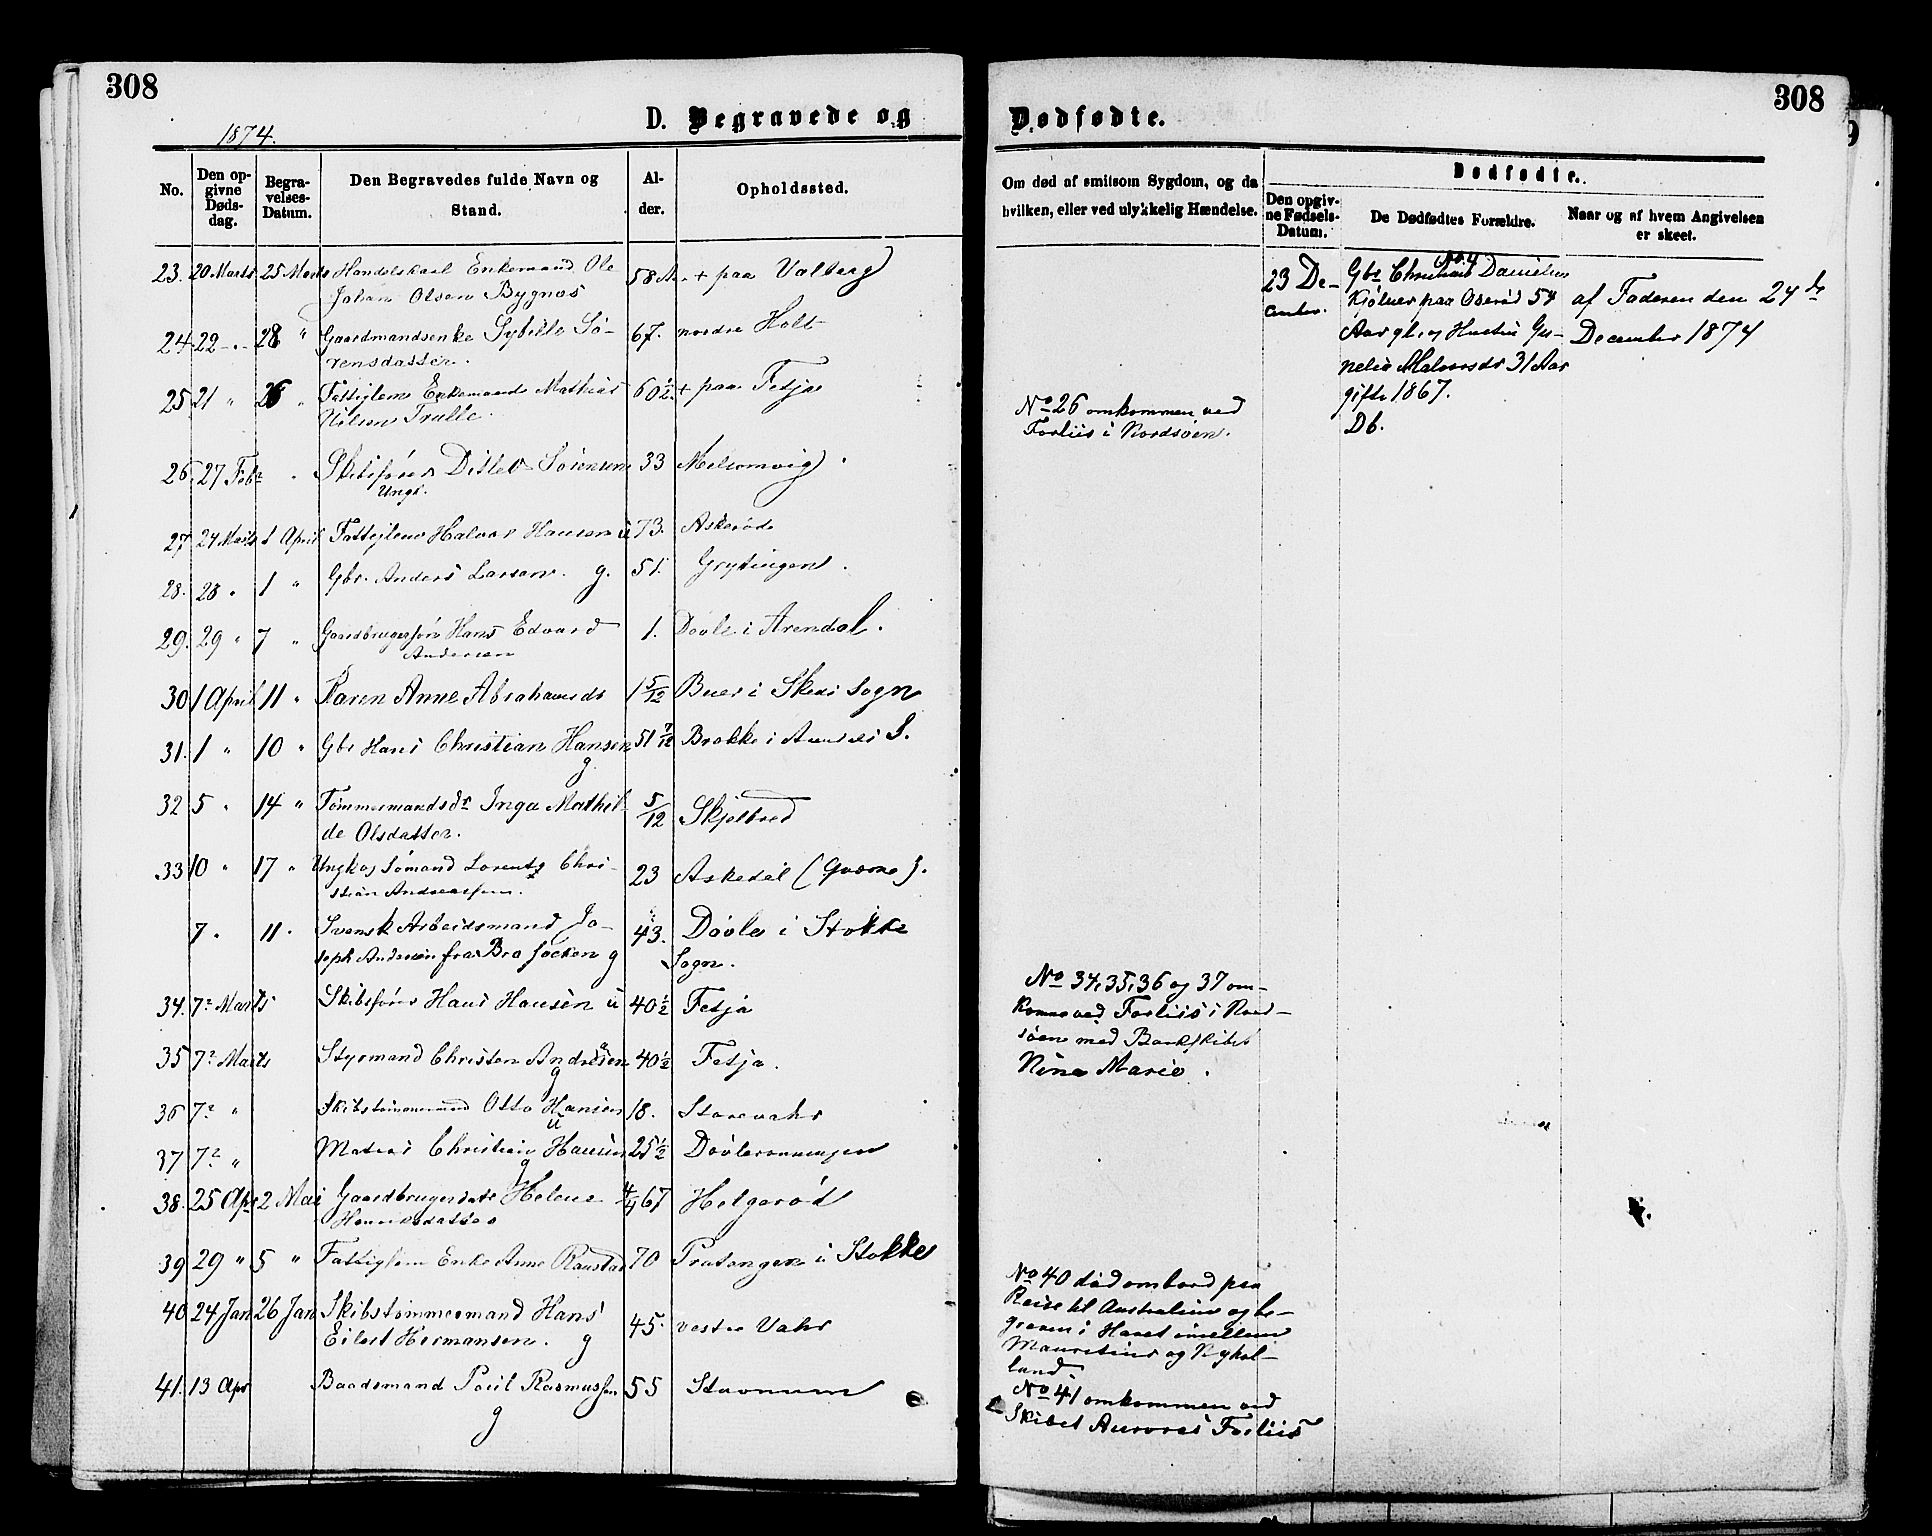 308
1874.
D. Begravede og
No.
Den op-
givne
Døds-
dag.
Begra-
velses-
Datum.
Den Begravedes fulde Navn og
Stand.
Al-
der.
Opholdssted.
23. 20 Marts 25 Marts Handelskarl Enkemand Ole 58 + paa Valberg
Johan Olsen Bygnes
24 22 - 28 " Gaardmandsenke Sybille Sö- 67. nordre Holt
rensdatter.
25 21 " 26 " Fattiglem Enkemand Mathias 60 1/2 + paa Fetja
Nilsen Trulle.
26. 27 Febr Skibsfører Ditlev Sörensen 33 Melsomvig
Ungk.
27 24 Marts 1 April Fattiglem Halvor Hansen ü 73. Askeröde
28. 28 " 1 " Gbr. Anders Larsen. g. 51. Grytingen
29. 29 " 7 " Gaardbrugersön Hans Edvard 1. Døvle i Arendal.
Andersen
30 1 April 11 " Karen Anne Abrahamsdr 1 5/12 Buer i Skees Sogn
31. 1 " 10 " Gbr Hans Christian Hansen 51 7/12 Brekke i S.
g
32 5 " 14 " Tømmermandsdr Inga Mathil- 5/12 Skjelbred
de Olsdatter.
33 10 " 17 " Ungkar Sömand Lorentz Chri- 23 Askedal
stian Andreassen.
7 " 11 " Svensk Arbeidsmand Jo- 43. Døvle i Stokke
seph Andersen fra Bro Socken g Sogn.
34. 7de Marts Skibsfører Hans Hansen ü 40 1/2 Fetja
35 7de Marts Styrmand Christen Andresen 40 1/2 Fetja.
g
36 7de " Skibstømmermand Otto Hansen 18. Storevahr
ü
37 7de " Matros Christian Hansen 25 1/2
g
38. 25 Apr 2 Mai Gaardbrugerdatr Helene 67 Helgeröd
Henriksdatter
39 29 " 5 " Fattiglem Enke Anne Raastad 70 Pratangen i Stokke
40 24 Jan 26 Jan Skibstömmermand Hans 45. vestre Vahr
Eilert Hermansen. g
41. 13 Apr Baadsmand Poul Rasmussen 55 Stavnum
g
308
Dødfødte.
Om død af smitsom Sygdom, og da
hvilken, eller ved ulykkelig Hændelse.
Dødfødte.
Den opgiv-
ne Fødsels-
Datum.
De Dødfødtes Forældre.
Naar og af hvem Angivelsen
er skeet.
23 De-
cember.
Gbr. Christian Danielsen
Kjølner paa Oserød 54
Aar gl. og Hustru Gu-
nelia Halvorsdr 31 Aar
gift 1867.
Db.
af Faderen den 24de
December 1874
No 26 omkommen ved
Forliis i Nordsøen.
No 34, 35, 36 og 37 om-
komne ved Forliis i Nord-
søen med Barkskibet
Nina Marie.
No 40 død ombord paa
Reise til Australien og be-
graven i Havet imellem
Mauretius og Nyhol-
land.
No 41 omkommen ved
Skibet Auroras Forliis